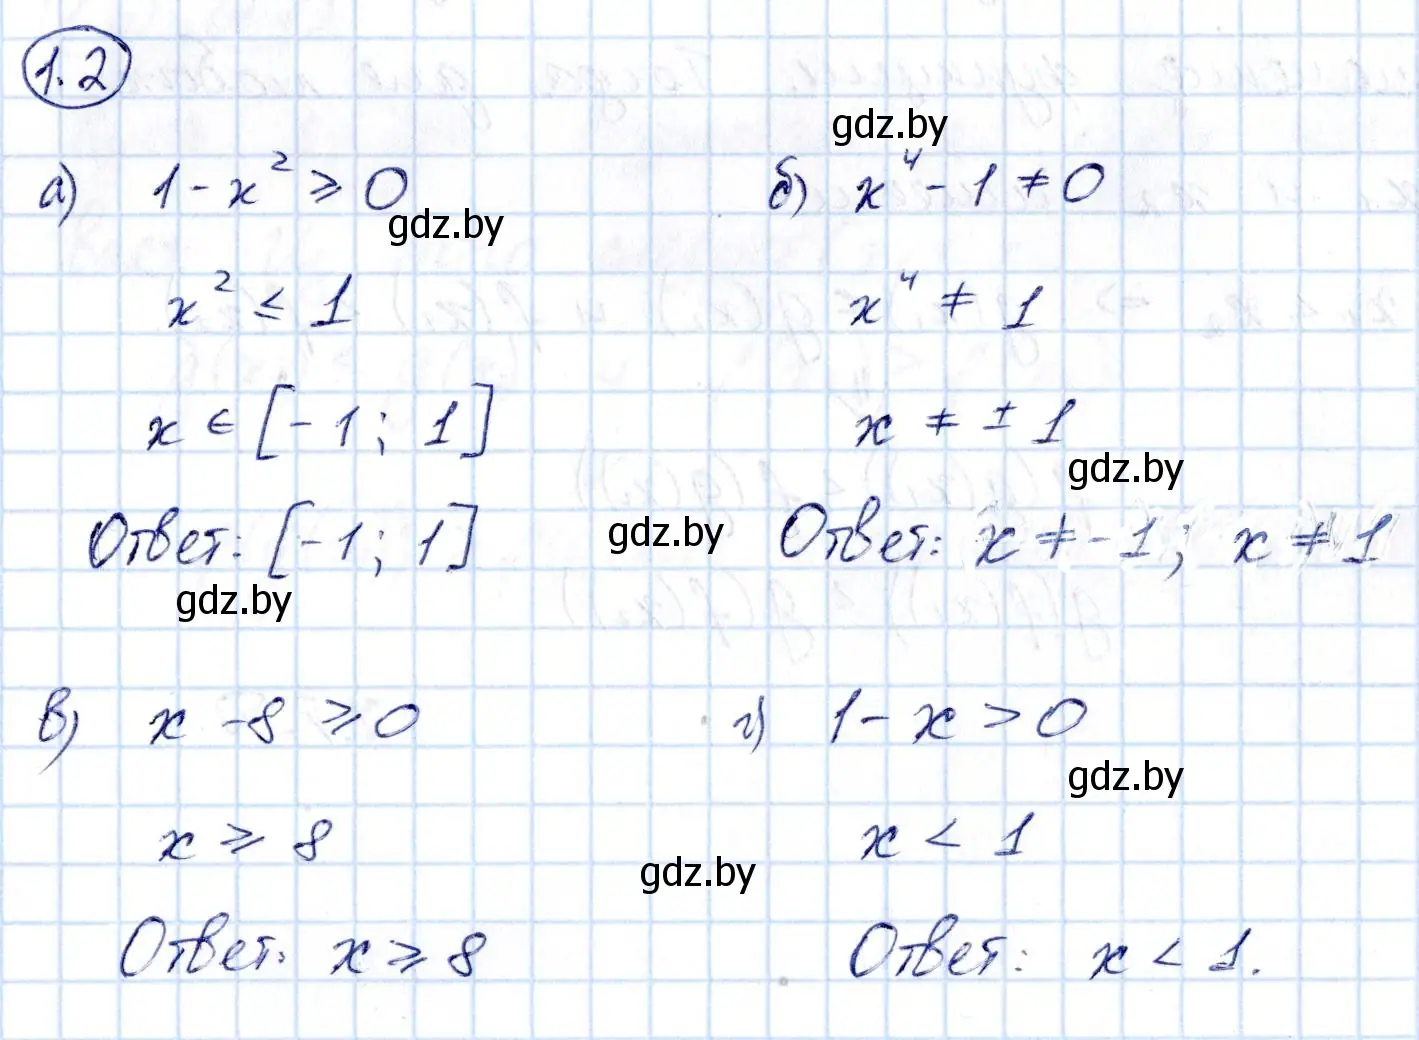 1.2
gdz.by
а) 1 - x² ≥ 0
gdz.by
x² ≤ 1
x ∈ [-1; 1]
Ответ: [-1; 1]
gdz.by
gdz.by
б) x⁴ - 1 ≠ 0
x⁴ ≠ 1
x ≠ ± 1
gdz.by
Ответ: x ≠ -1; x ≠ 1
в) x - 8 ≥ 0
x ≥ 8
gdz.by
Ответ: x ≥ 8
г) 1 - x > 0
gdz.by
x < 1
Ответ: x < 1.